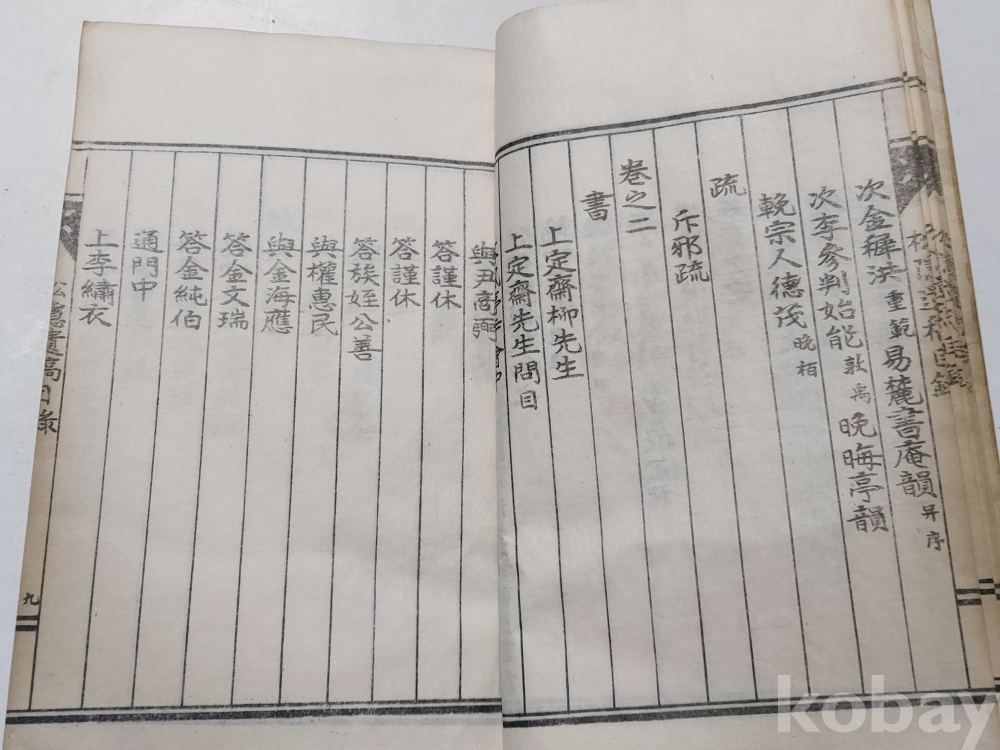 次金穉洪重範易麓書庵韻昇序
次李參判始能敦禹晚晦亭韻
輓宗人德茂晚栢
疏
斥邪疏
卷之二
書
上定齋柳先生
上定齋先生問目
與尹商弼
答謹休
答謹休
答族姪公善
與權惠民
與金海應
答金文瑞
答金純伯
通門中
上李繡衣
遺稿目錄
九
kobay